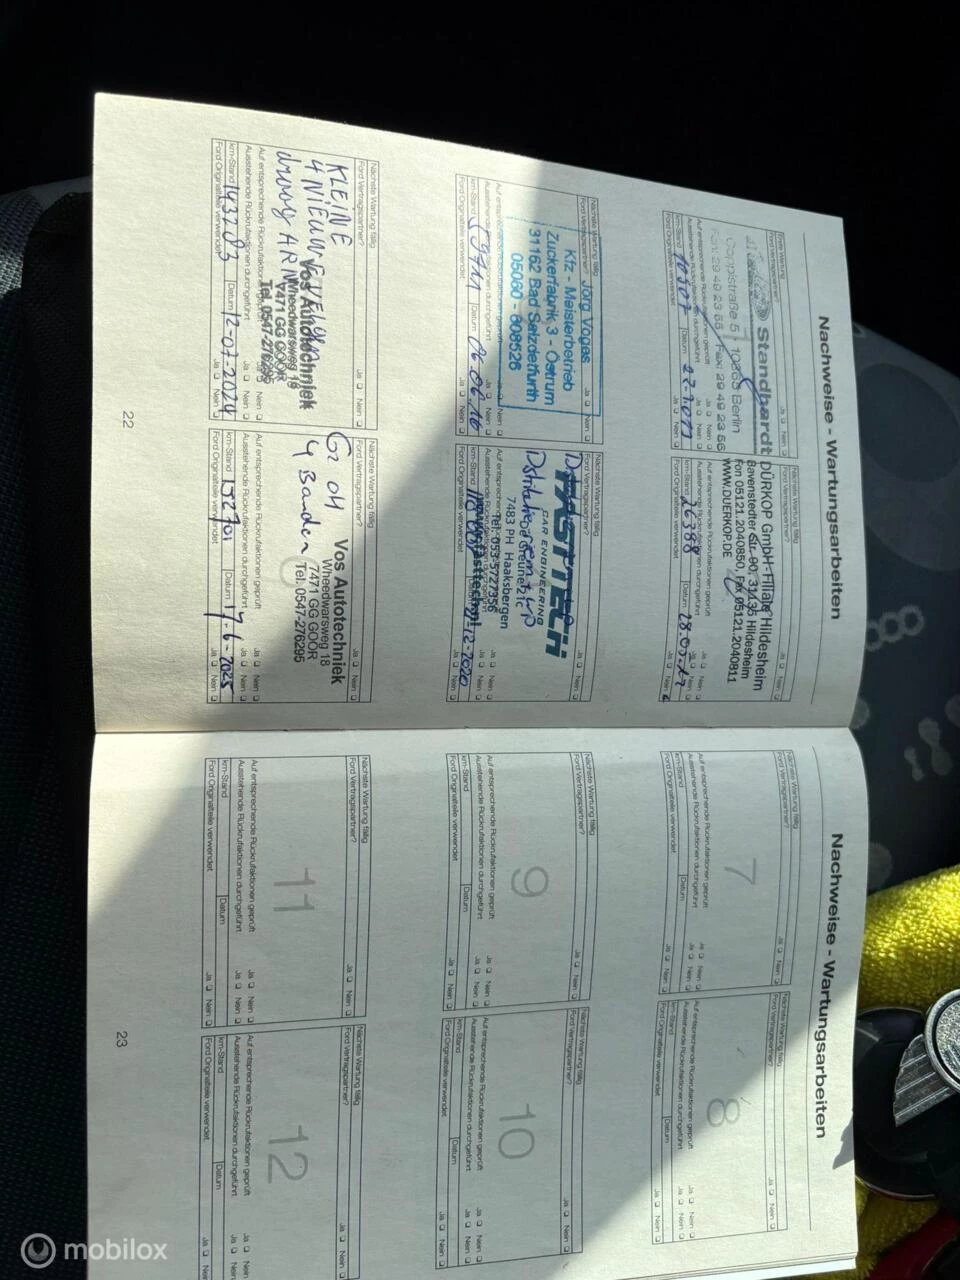 Nachweise - Wartungsarbeiten
Erste Wartung
Ford Vertragspartner?
Ja Nein
Standhardt
Coppistraße 5 10365 Berlin
Fon: 29 49 23 55 / Fax: 29 49 23 56
Auf entsprechende Rückrufaktionen geprüft Ja Nein
Ausstehende Rückrufaktionen durchgeführt Ja Nein
km-Stand Datum
Ford Originalteile verwendet Ja Nein
Nächste Wartung fällig
Ford Vertragspartner? Ja Nein
DÜRKOP GmbH-Filiale Hildesheim
Bavenstedter Str. 90, 31135 Hildesheim
Fon 05121.2040850, Fax 05121.2040811
WWW.DUERKOP.DE
Auf entsprechende Rückrufaktionen geprüft Ja Nein
Ausstehende Rückrufaktionen durchgeführt Ja Nein
km-Stand 26388 Datum
Ford Originalteile verwendet Ja Nein
Nächste Wartung fällig
Ford Vertragspartner? Ja Nein
Jörg Voges
Kfz - Meisterbetrieb
Zuckerfabrik 3 - Östrum
31162 Bad Salzdetfurth
05060 - 608526
Auf entsprechende Rückrufaktionen geprüft Ja Nein
Ausstehende Rückrufaktionen durchgeführt Ja Nein
km-Stand Datum 06.06.16
Ford Originalteile verwendet Ja Nein
Nächste Wartung fällig
Ford Vertragspartner? Ja Nein
FASTTECH
CAR ENGINEERING
7483 PH Haaksbergen
Tel: 053-5727356
Auf entsprechende Rückrufaktionen geprüft Ja Nein
Ausstehende Rückrufaktionen durchgeführt Ja Nein
km-Stand Datum -12-2020
Ford Originalteile verwendet Ja Nein
Nächste Wartung fällig
Ford Vertragspartner? Ja Nein
KLEINE
4 NIEUWE
Vos Autotechniek
Wheedwarsweg 18
7471 GG GOOR
Tel. 0547-276295
Auf entsprechende Rückrufaktionen geprüft Ja Nein
Ausstehende Rückrufaktionen durchgeführt Ja Nein
km-Stand 143283 Datum 12-07-2024
Ford Originalteile verwendet Ja Nein
Nächste Wartung fällig
Ford Vertragspartner? Ja Nein
4 Banden
Vos Autotechniek
Wheedwarsweg 18
7471 GG GOOR
Tel. 0547-276295
Auf entsprechende Rückrufaktionen geprüft Ja Nein
Ausstehende Rückrufaktionen durchgeführt Ja Nein
km-Stand 152701 Datum 17-6-2025
Ford Originalteile verwendet Ja Nein
22
Nachweise - Wartungsarbeiten
Nächste Wartung fällig
Ford Vertragspartner? Ja Nein
7
Auf entsprechende Rückrufaktionen geprüft Ja Nein
Ausstehende Rückrufaktionen durchgeführt Ja Nein
km-Stand Datum
Ford Originalteile verwendet Ja Nein
Nächste Wartung fällig
Ford Vertragspartner? Ja Nein
8
Auf entsprechende Rückrufaktionen geprüft Ja Nein
Ausstehende Rückrufaktionen durchgeführt Ja Nein
km-Stand Datum
Ford Originalteile verwendet Ja Nein
Nächste Wartung fällig
Ford Vertragspartner? Ja Nein
9
Auf entsprechende Rückrufaktionen geprüft Ja Nein
Ausstehende Rückrufaktionen durchgeführt Ja Nein
km-Stand Datum
Ford Originalteile verwendet Ja Nein
Nächste Wartung fällig
Ford Vertragspartner? Ja Nein
10
Auf entsprechende Rückrufaktionen geprüft Ja Nein
Ausstehende Rückrufaktionen durchgeführt Ja Nein
km-Stand Datum
Ford Originalteile verwendet Ja Nein
Nächste Wartung fällig
Ford Vertragspartner? Ja Nein
11
Auf entsprechende Rückrufaktionen geprüft Ja Nein
Ausstehende Rückrufaktionen durchgeführt Ja Nein
km-Stand Datum
Ford Originalteile verwendet Ja Nein
Nächste Wartung fällig
Ford Vertragspartner? Ja Nein
12
Auf entsprechende Rückrufaktionen geprüft Ja Nein
Ausstehende Rückrufaktionen durchgeführt Ja Nein
km-Stand Datum
Ford Originalteile verwendet Ja Nein
23
mobilox